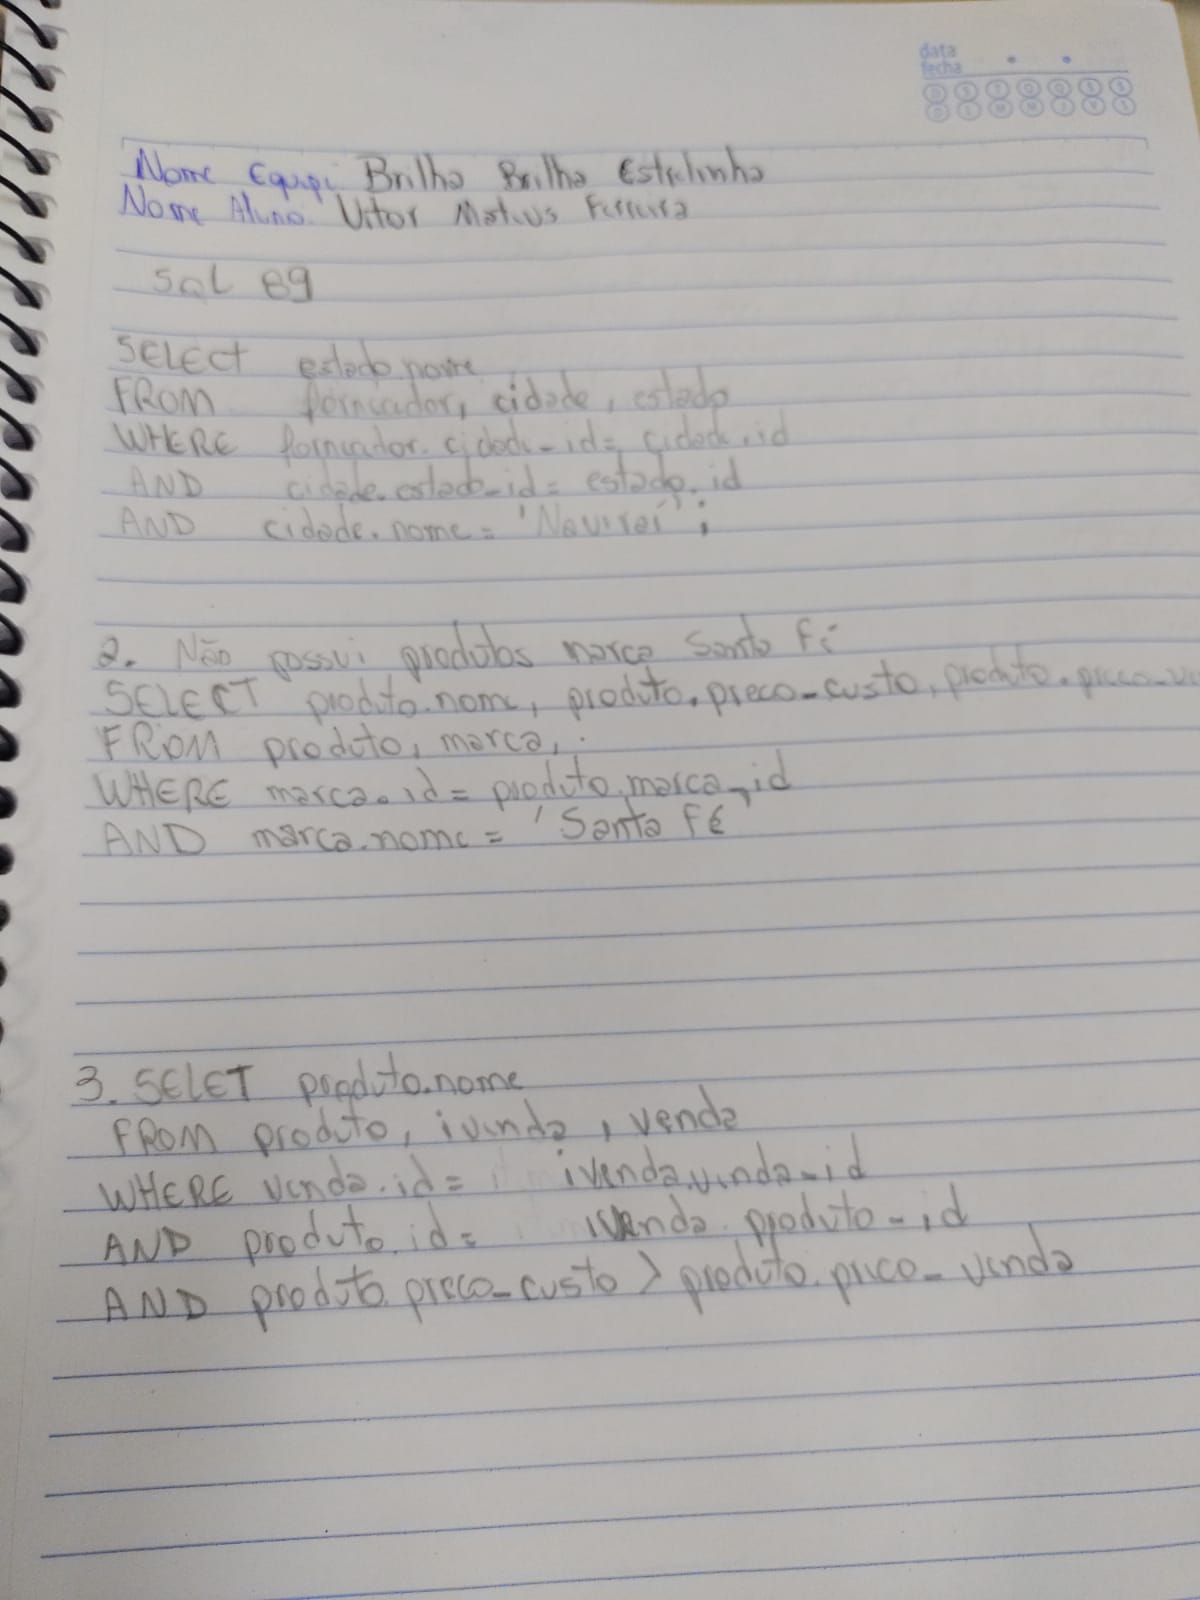 data
fecha
Nome Equipe Brilha Brilha Estrelinha
Nome Aluno: Vitor Mateus Ferreira
SQL 89
SELECT estado.nome
FROM fornecador, cidade, estado
WHERE fornecador.cidade_id = cidade.id
AND cidade.estado_id = estado.id
AND cidade.nome = 'Naviraí';
2. Não possui produtos marca Santa Fé
SELECT produto.nome, produto.preco_custo, produto.preco_ve
FROM produto, marca,
WHERE marca.id = produto.marca_id
AND marca.nome = 'Santa Fé'
3. SELET produto.nome
FROM produto, ivenda, venda
WHERE venda.id = ivenda.venda_id
AND produto.id = ivenda.produto_id
AND produto.preco_custo > produto.preco_venda